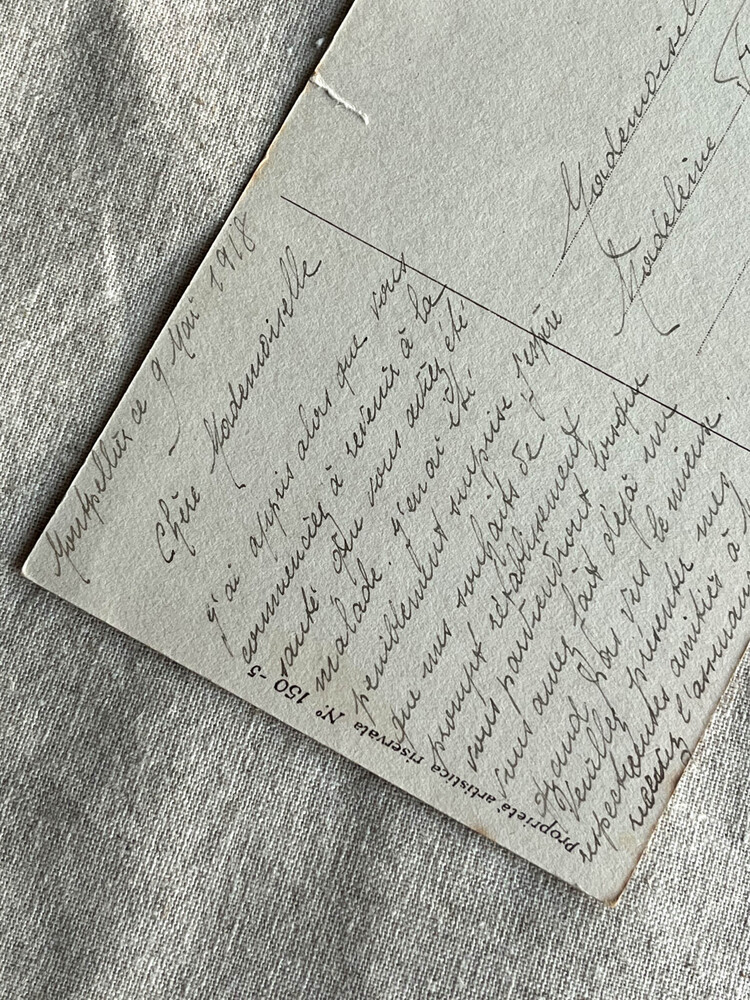 Montpellier ce 9 Mai 1918
Chère Mademoiselle
J'ai appris alors que vous
commenciez à revenir à la
santé que vous aviez été
malade. J'en ai été
peniblement surprise J'espère
que mes souhaits de
prompt rétablissement
vous parviendront lorsque
vous aurez fait déjà un
grand pas vers le mieux.
Veuillez présenter mes
respectueuses amitiés à
recevez l'assurance
Mademoisel
Madeleine
Proprietà artistica riservata N.º 150 - 5